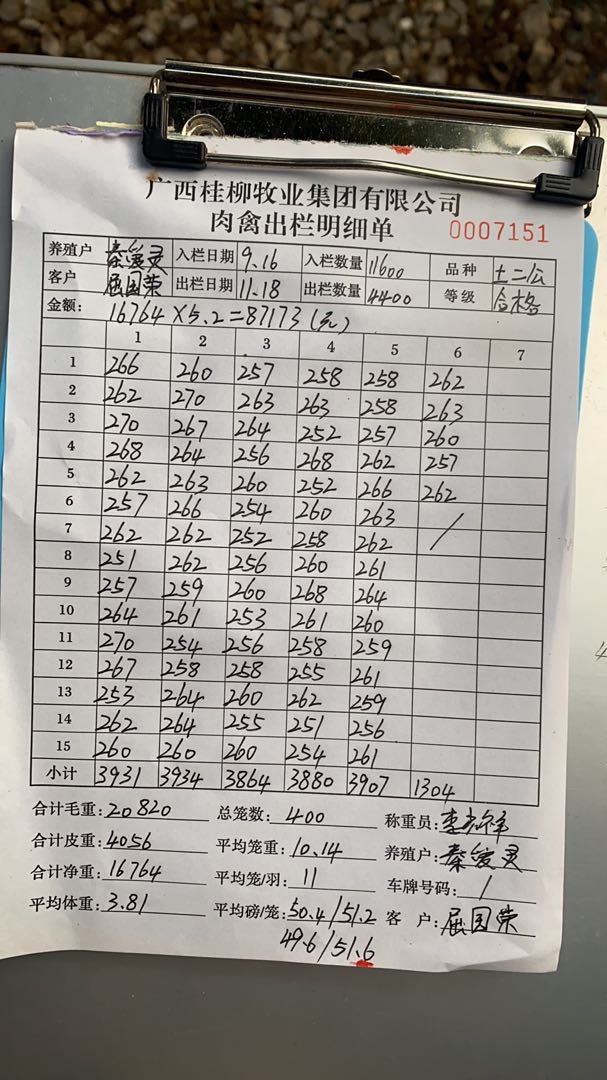 广西桂柳牧业集团有限公司
肉禽出栏明细单 0007151
养殖户 秦爱灵 入栏日期 9.16 入栏数量 11600 品种 土二公
客户 屈国荣 出栏日期 11.18 出栏数量 4400 等级 合格
金额: 16764×5.2=87173(元)
1 2 3 4 5 6 7
1 266 260 257 258 258 262
2 262 270 263 263 258 263
3 270 267 264 252 257 260
4 268 264 256 268 262 257
5 262 263 260 252 266 262
6 257 266 254 260 263 /
7 262 262 252 258 262
8 251 262 256 260 261
9 257 259 260 268 264
10 264 261 253 261 260
11 270 254 256 258 259
12 267 258 258 255 261
13 253 264 260 262 259
14 262 264 255 251 256
15 260 260 260 254 261
小计 3931 3934 3864 3880 3907 1304
合计毛重:20820 总笼数:400 称重员:李
合计皮重:4056 平均笼重:10.14 养殖户:秦爱灵
合计净重:16764 平均笼/羽:11 车牌号码:/
平均体重:3.81 平均磅/笼:50.4/51.2 客户:屈国荣
49.6/51.6